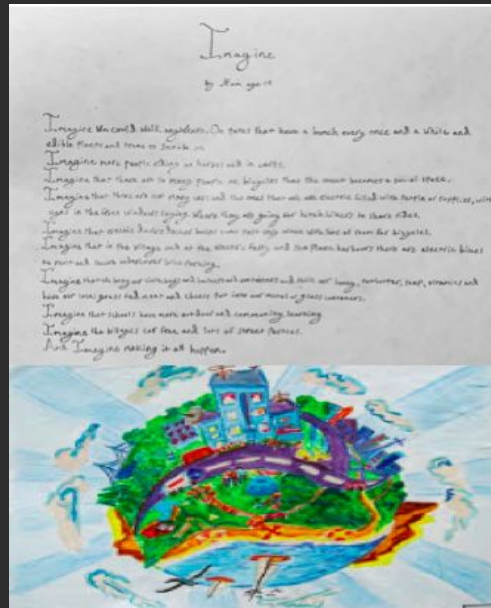 Imagine
by
Imagine We could walk anywhere. On paths that have a bench every once and a while and
edible plants and to on.
Imagine more people riding on horses and in carts.
Imagine that there are so many people on bicycles that the becomes a social space.
Imagine that there are not many cars and the ones that are are electric filled with people or supplies, with
signs in the windows saying where they are going for hitch hikers to share rides.
Imagine that electric buses come past with lots of room for bicycles.
Imagine that in the village and at the ferry and plane harbours there are electric bikes
to rent and
Imagine that we bring our bags and and containers and our honey, soap, and
have our local grass fed meat and cheese put into our metal or glass containers.
Imagine that schools have more outdoor and community learning.
Imagine the villages car free and lots of street parties.
And Imagine making it all happen.